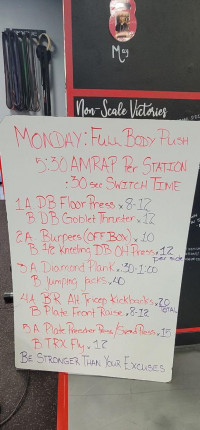 May
Non-Scale Victories
MONDAY: FULL BODY PUSH
5:30 AMRAP PER STATION
:30 sec SWITCH TIME
1A DB Floor Press x 8-12
B. DB Goblet Thruster x 12
2A Burpees (OFF BOX) x 10
B. 1/2 Kneeling DB OH Press x 12
per side
3A Diamond Plank x :30-1:00
B Jumping Jacks x 40
4A BR Alt Tricep Kickbacks x 20
TOTAL
B Plate Front Raise x 8-12
5A Plate Press x 15
B TRX Fly x 12
BE STRONGER THAN YOUR EXCUSES